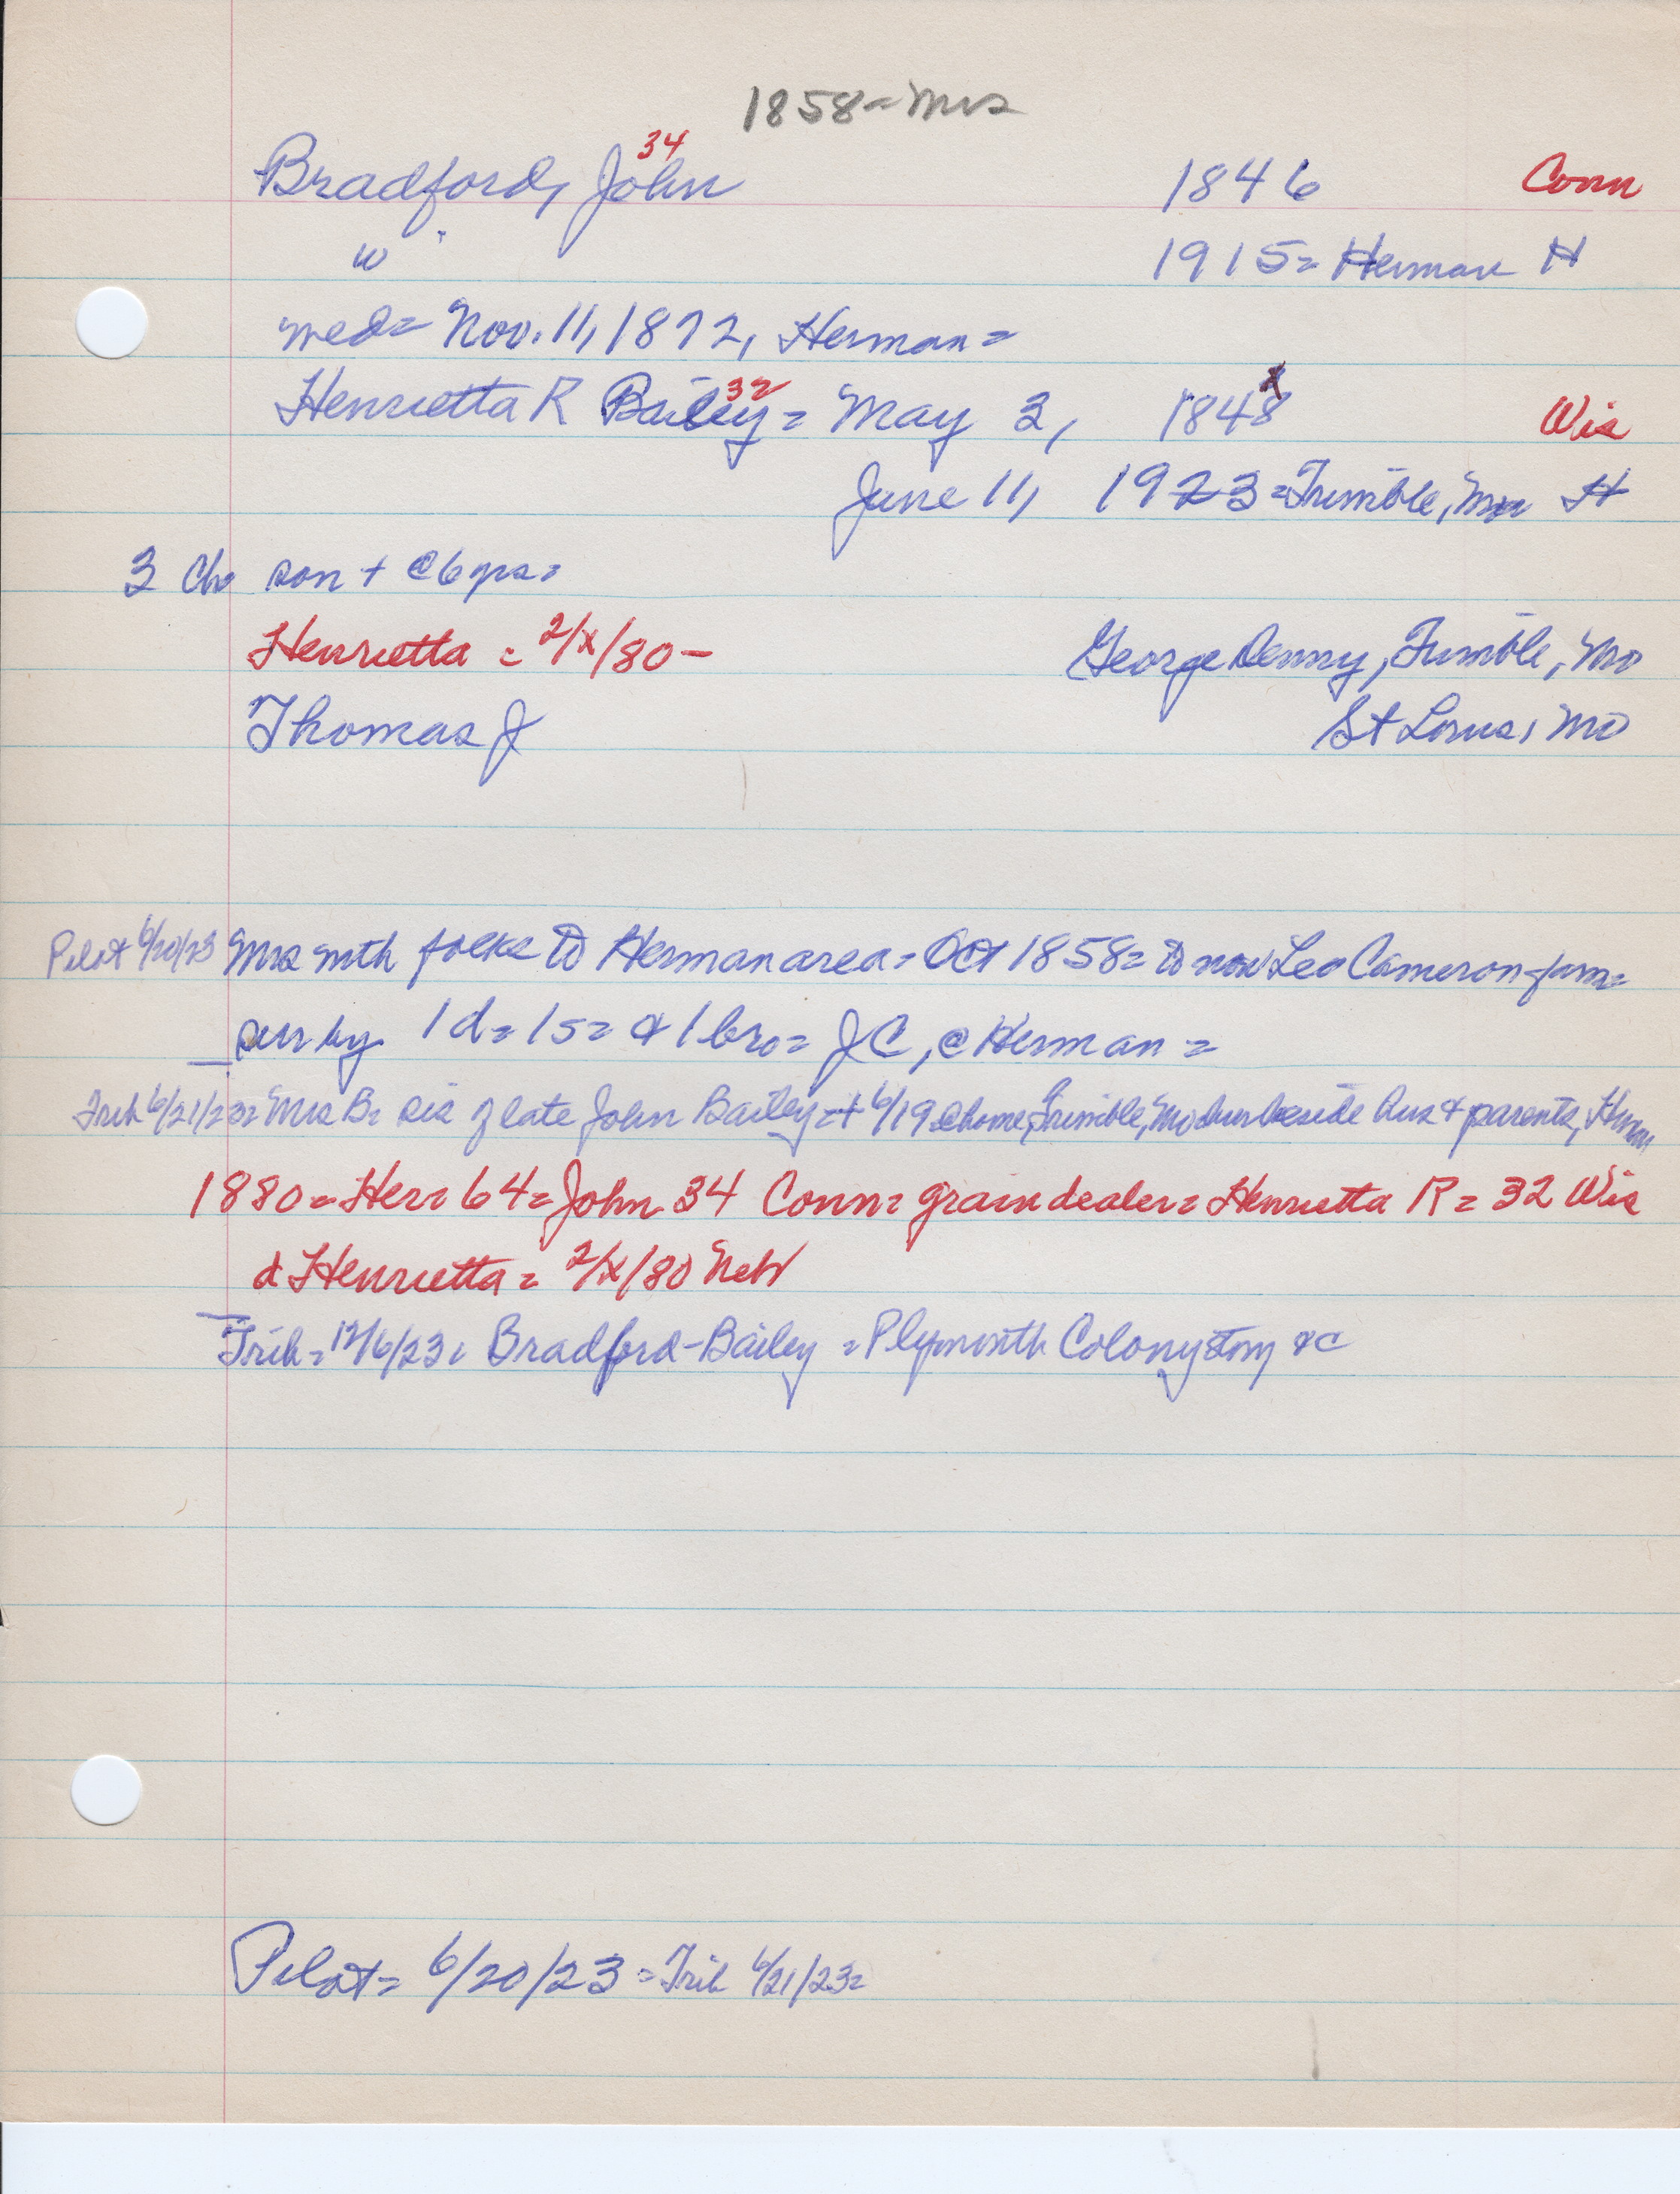 1858 = Mrs
34
Bradford, John 1846 Conn
w " 1915 = Herman H
med = Nov. 11, 1872, Herman =
32 x
Henrietta R Bailey = May 2, 1848 Wis
June 11, 1923 = Trimble, Mo H
3 Ch son + @ 6 yrs =
Henrietta = 2/x/80 - George Denny, Trimble, Mo
Thomas J St Louis, Mo
Pilot 6/20/23 Mrs with folks to Herman area = Oct 1858 = to now Leo Cameron farm =
sur by 1 d = 1 s = & 1 bro = J C, @ Herman =
Trib 6/21/23 = Mrs B = sis of late John Bailey = + 6/19 @ home, Trimble, Mo bur beside hus & parents, Herman
1880 = Her = 64 = John 34 Conn = grain dealer = Henrietta R = 32 Wis
d Henrietta = 2/x/80 Neb
Trib = 12/6/23 = Bradford-Bailey = Plymouth Colony story &c
Pilot = 6/20/23 = Trib 6/21/23 =